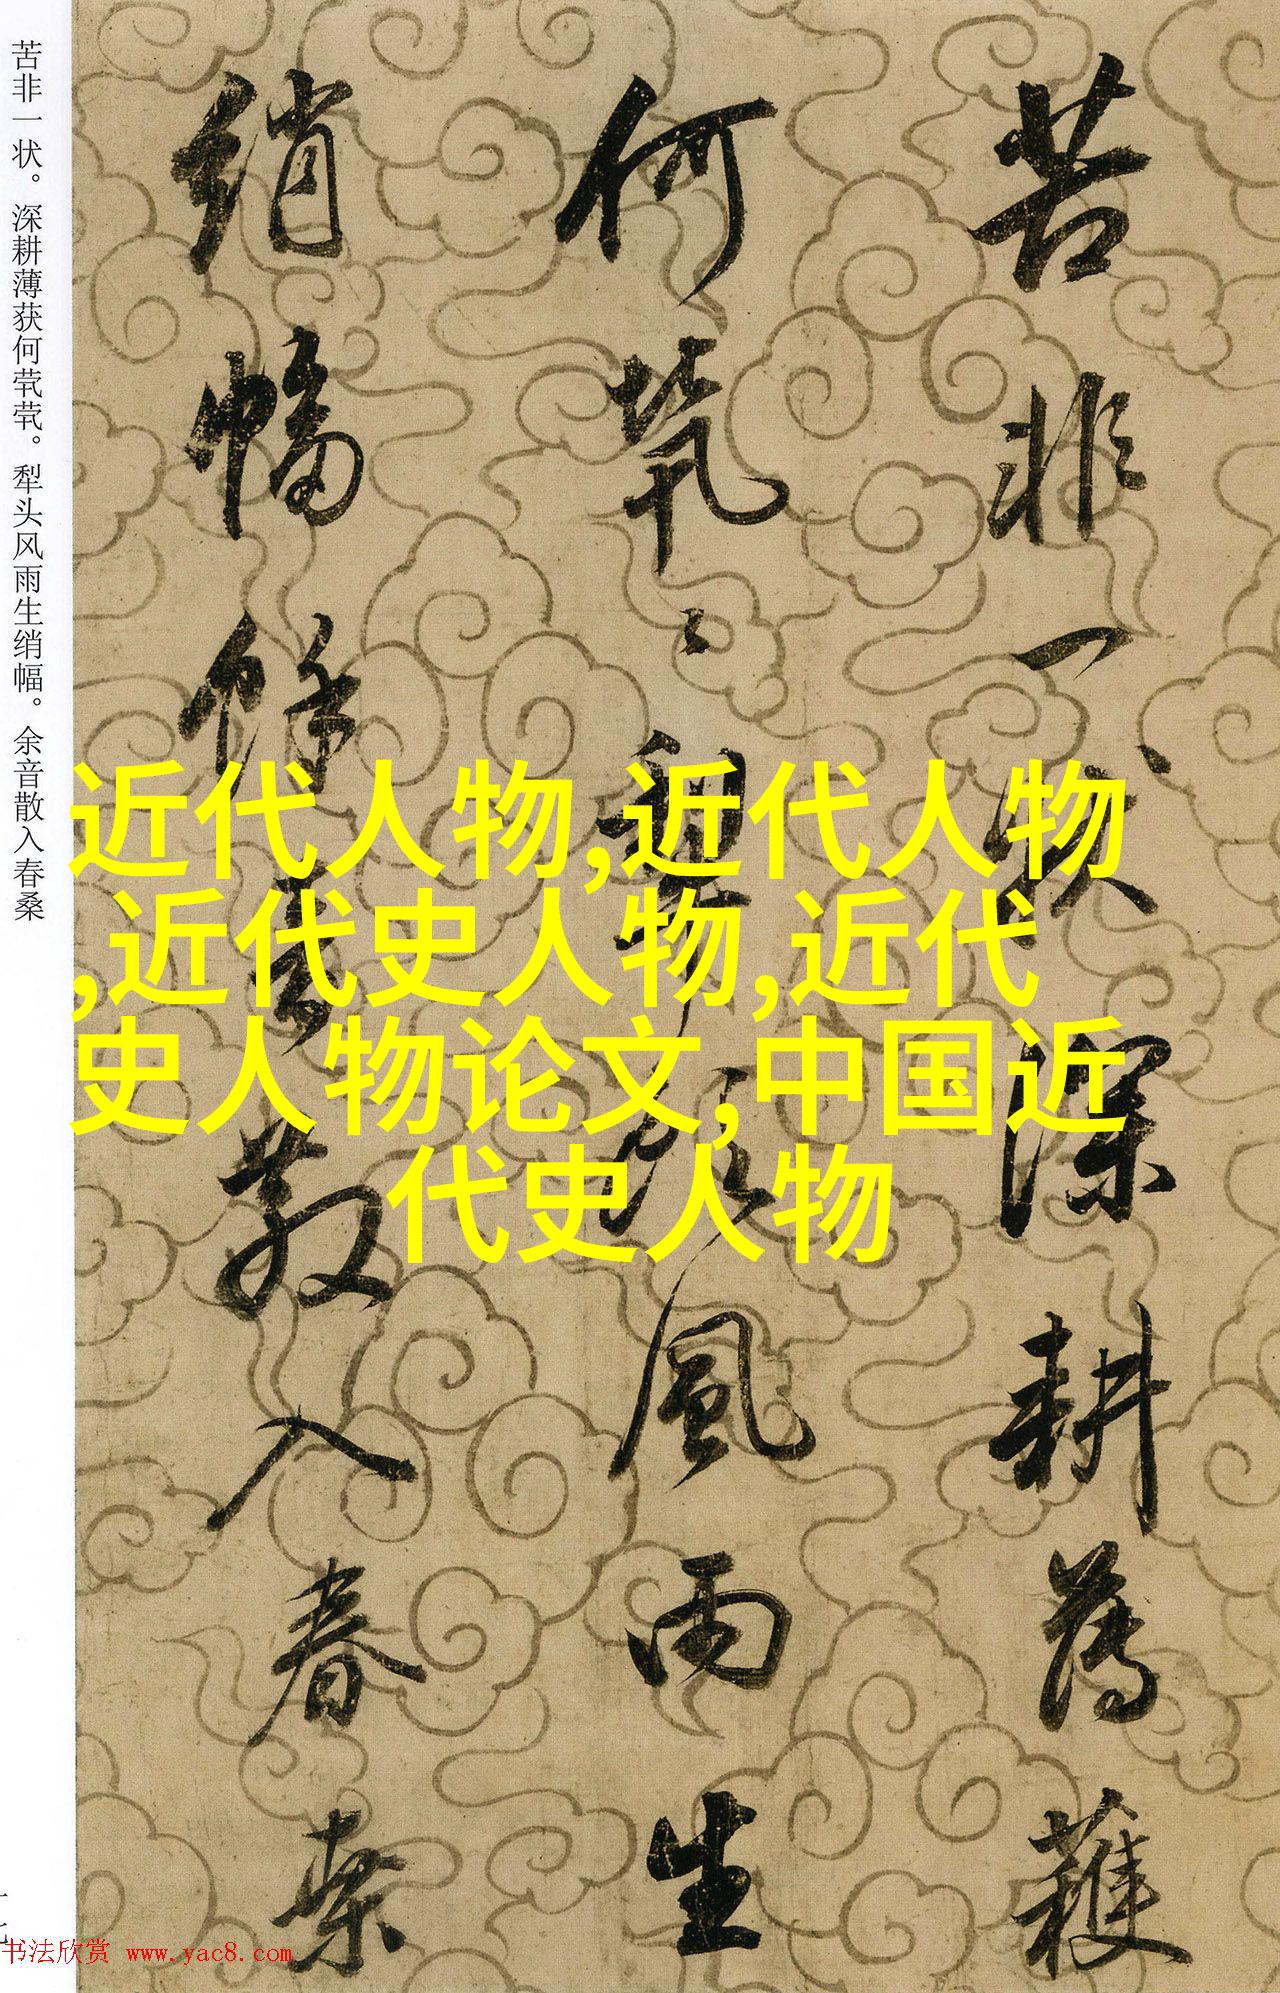 苦非一状。深耕薄获何茕茕。犁头风雨生绡幅。余音散入春桑
苦非一状深耕薄穫
何茕〻犁頭風雨生
绡幅餘音散入春桑
近代人物,近代人物
,近代史人物,近代
史人物论文,中国近
代史人物
书法欣赏 www.yac8.com